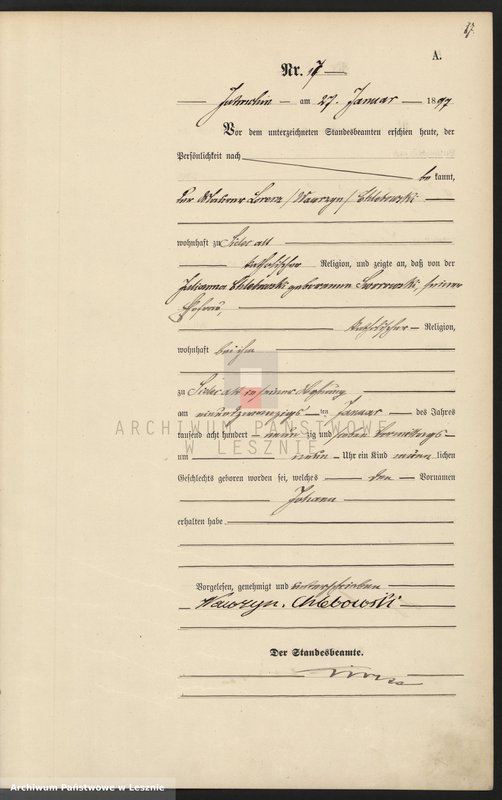 17.
A.
Nr. 17
Jutroschin am 27. Januar 1897
Vor dem unterzeichneten Standesbeamten erschien heute, der
Persönlichkeit nach
be kannt,
der Lorenz /Wawrzyn/ Chlebowski
wohnhaft zu Sielec alt
katholischer Religion, und zeigte an, daß von der
Julianna Chlebowski geborenen seiner
Ehefrau,
katholischer Religion,
wohnhaft bei ihm
zu Sielec alt in seiner Wohnung
am einundzwanzigsten Januar des Jahres
tausend acht hundert neun zig und sieben Vormittags
um neun Uhr ein Kind männlichen
Geschlechts geboren worden sei, welches den Vornamen
Johann
erhalten habe
Vorgelesen, genehmigt und unterschrieben
Wawrzyn. Chlebowski
Der Standesbeamte.
ARCHIWUM PAŃSTWOWE
W LESZNIE
Archiwum Państwowe w Lesznie